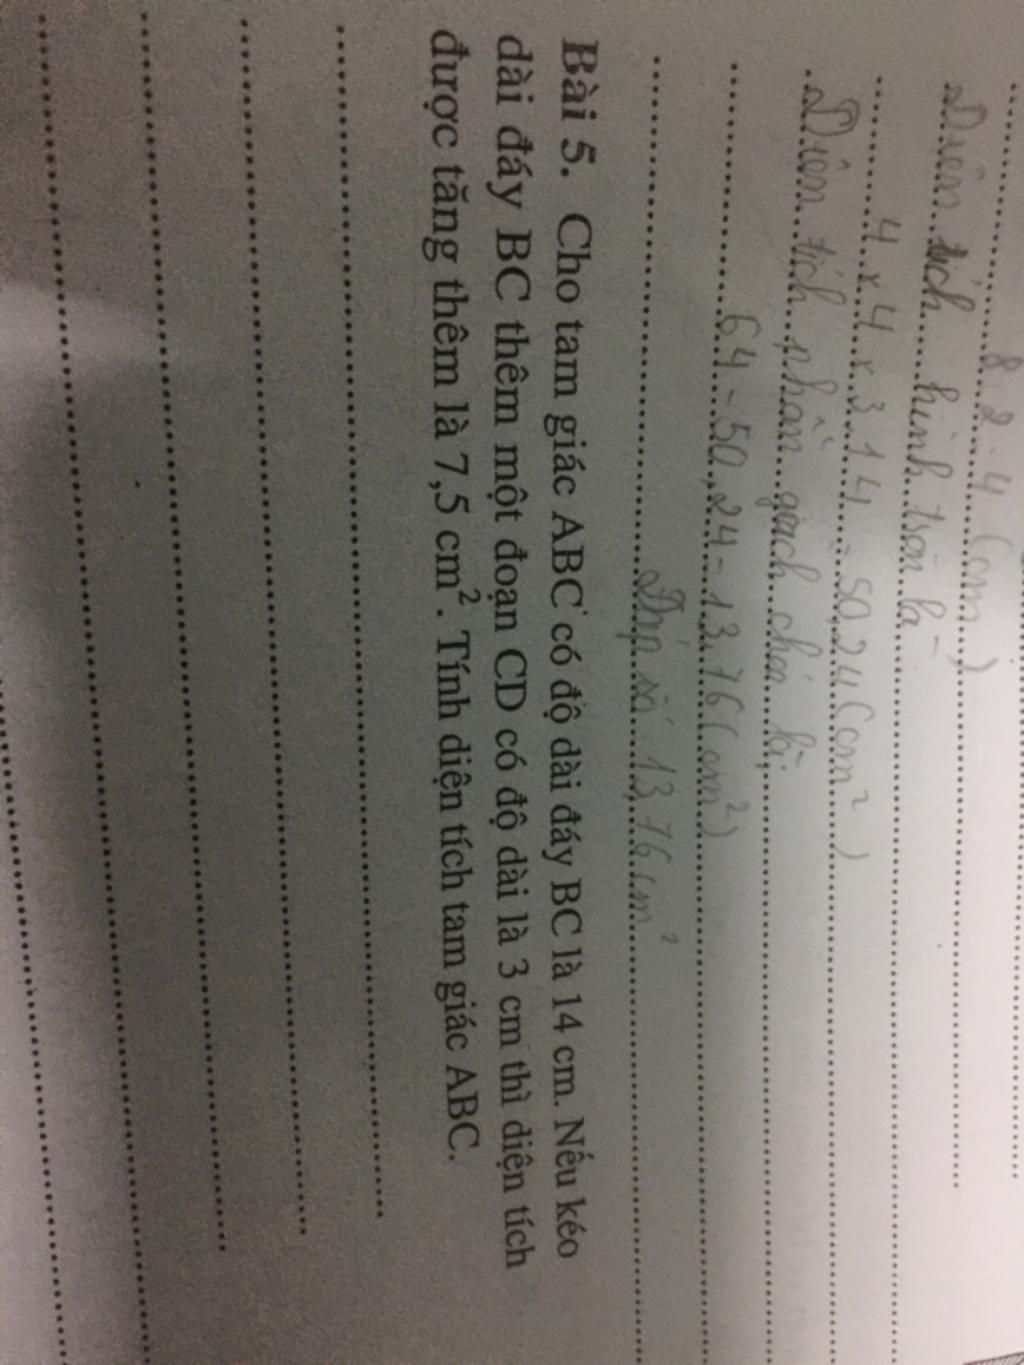 8 : 2 = 4 (cm)
Diện tích hình tròn là
4 x 4 x 3,14 = 50,24 (cm²)
Diện tích phần gạch chéo là:
64 - 50,24 = 13,76 (cm²)
Đáp số 13,76 cm²
Bài 5. Cho tam giác ABC có độ dài đáy BC là 14 cm. Nếu kéo
dài đáy BC thêm một đoạn CD có độ dài là 3 cm thì diện tích
được tăng thêm là 7,5 cm². Tính diện tích tam giác ABC.